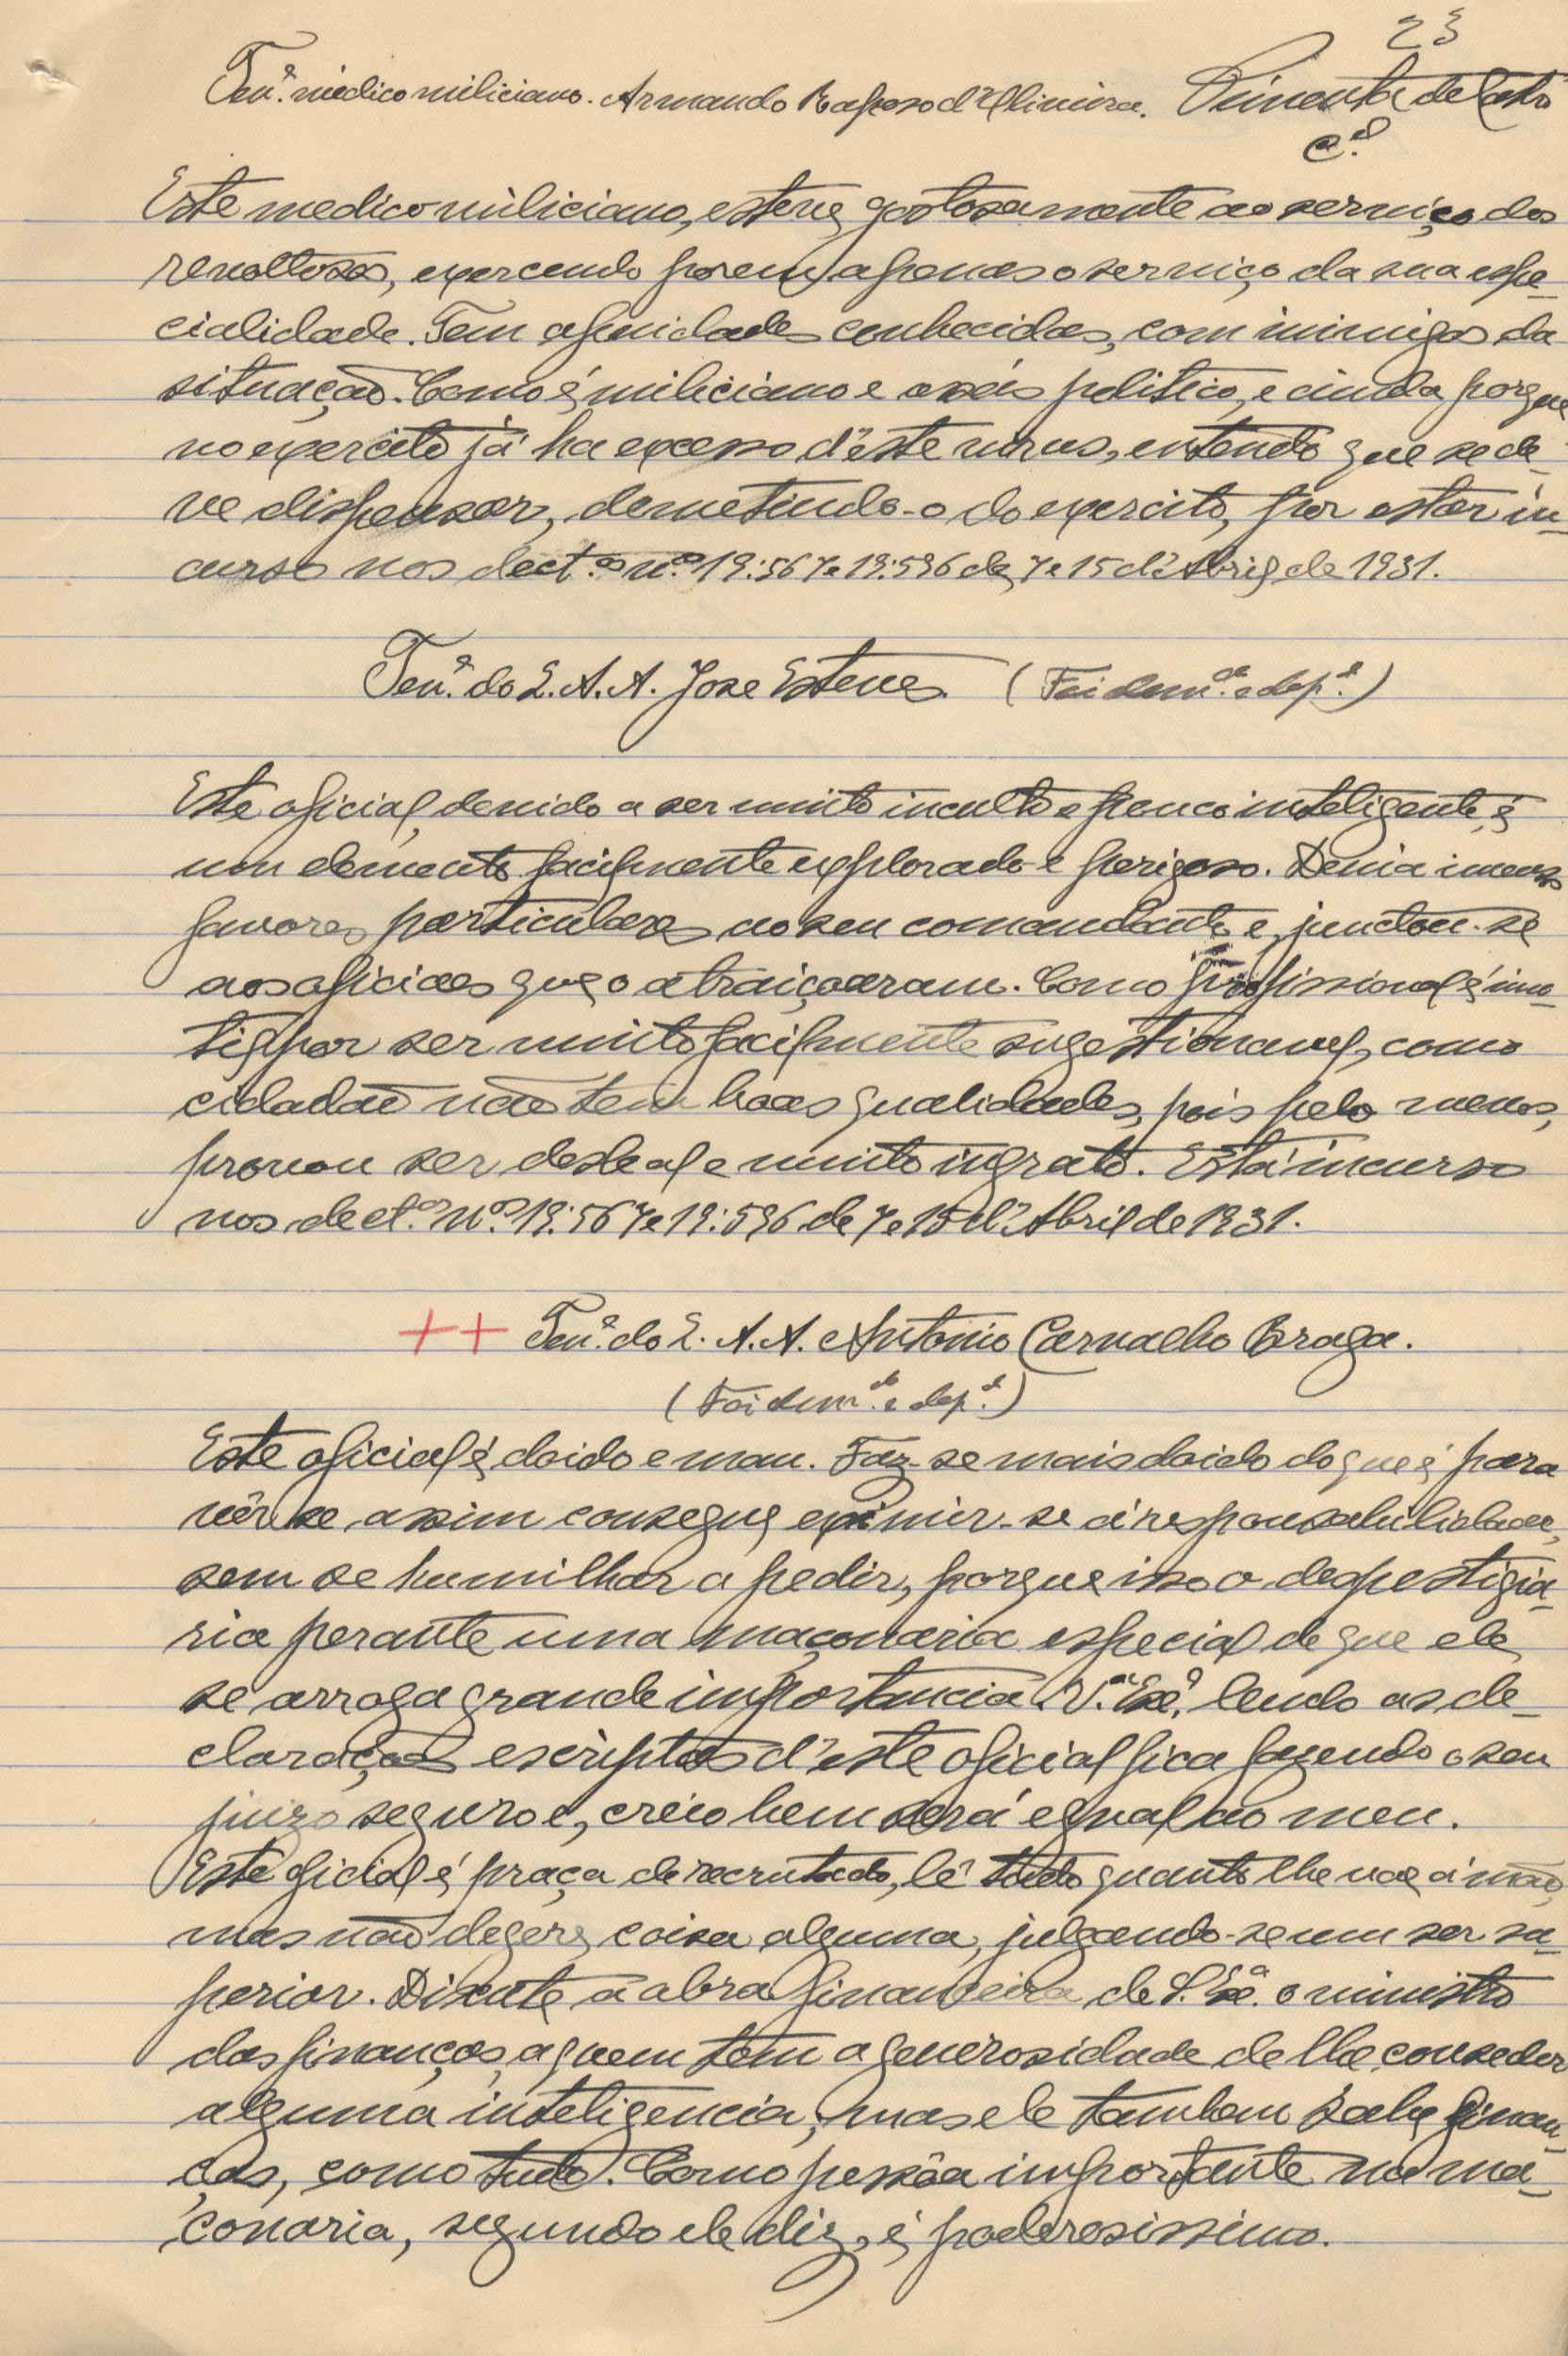 23
Ten.e médico miliciano. Armando Raposo d'Oliveira. Pimenta de Castro
C.el
Este medico miliciano, esteve gostosamente ao serviço dos
revoltosos, exercendo porem apenas o serviço da sua espe-
cialidade. Tem afinidades conhecidas, com inimigos da
situação. Como é miliciano e asás politico, e ainda porque
no exercito já ha excesso d'este virus, entendo que se de-
ve dispensar, demetindo-o do exercito, por estar in-
curso nos dect.os n.os 19:567 e 19:596 de 7 e 15 d'Abril de 1931.
Ten.e do Q. A. A. Jose Esteves (Foi dem.do e dep.do)
Este oficial, devido a ser muito inculto e pouco inteligente, é
um elemento facilmente explorado e perigoso. Devia imensos
favores particulares ao seu comandante e, junctou-se
aos oficiaes que o atraiçoaram. Como profissional é inu-
til por ser muito facilmente sugestionavel, como
cidadão não tem boas qualidades, pois pelo menos,
provou ser desleal e muito ingrato. Está incurso
nos dect.os n.os 19:567 e 19:596 de 7 e 15 d'Abril de 1931.
++ Ten.e do Q. A. A. Antonio Carvalho Braga.
(Foi dem.do e dep.do)
Este oficial é doido e mau. Faz-se mais doido do que é para
vêr se assim consegue eximir-se á responsabilidade,
sem se humilhar a pedir, porque isso o despestigia-
ria perante uma maçonaria especial de que ele
se arroga grande importancia. V.a Ex.a lendo as de-
claraçoes escriptas d'este oficial fica fazendo o seu
juizo seguro e, creio bem será egual ao meu.
Este oficial é praça de recrutado, lê tudo quanto lhe vae á mão,
mas não degere coisa alguma, julgando-se um ser su-
perior. Discute a obra financeira de S. Ex.a o ministro
das finanças, a quem tem a generosidade de lhe conseder
alguma inteligencia, mas ele tambem sabe finan-
ças, como tudo. Como pessôa importante na ma-
çonaria, segundo ele diz, é poderosissimo.